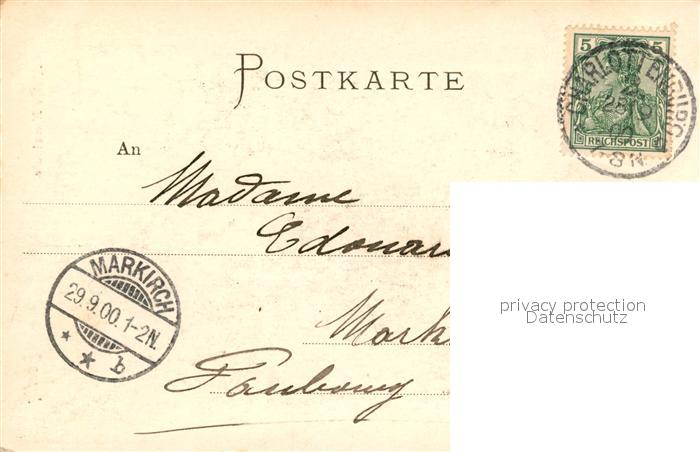 POSTKARTE
5 5
REICHSPOST
CHARLOTTENBURG
8 N
An
Madame
Edouar
MARKIRCH
29.9.00.1-2N.
* * b
Mark
Faubourg
privacy protection
Datenschutz